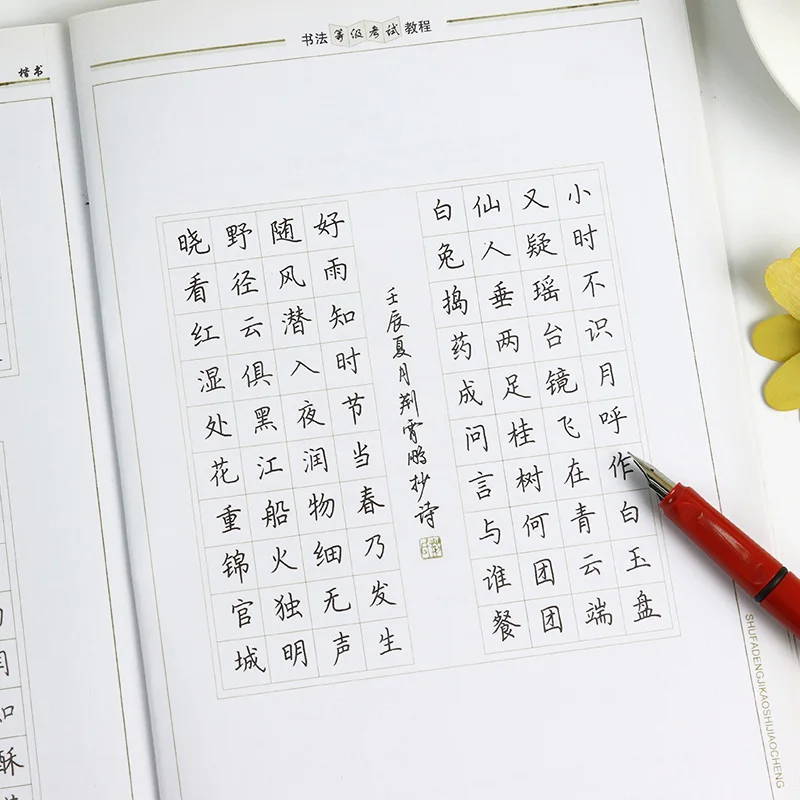 书法等级考试教程
楷书
小时不识月呼作白玉盘
又疑瑶台镜飞在青云端
仙人垂两足桂树何团团
白兔捣药成问言与谁餐
壬辰夏月荆霄鹏抄诗
好雨知时节当春乃发生
随风潜入夜润物细无声
野径云俱黑江船火独明
晓看红湿处花重锦官城
SHUFADENGJIKAOSHIJIAOCHENG